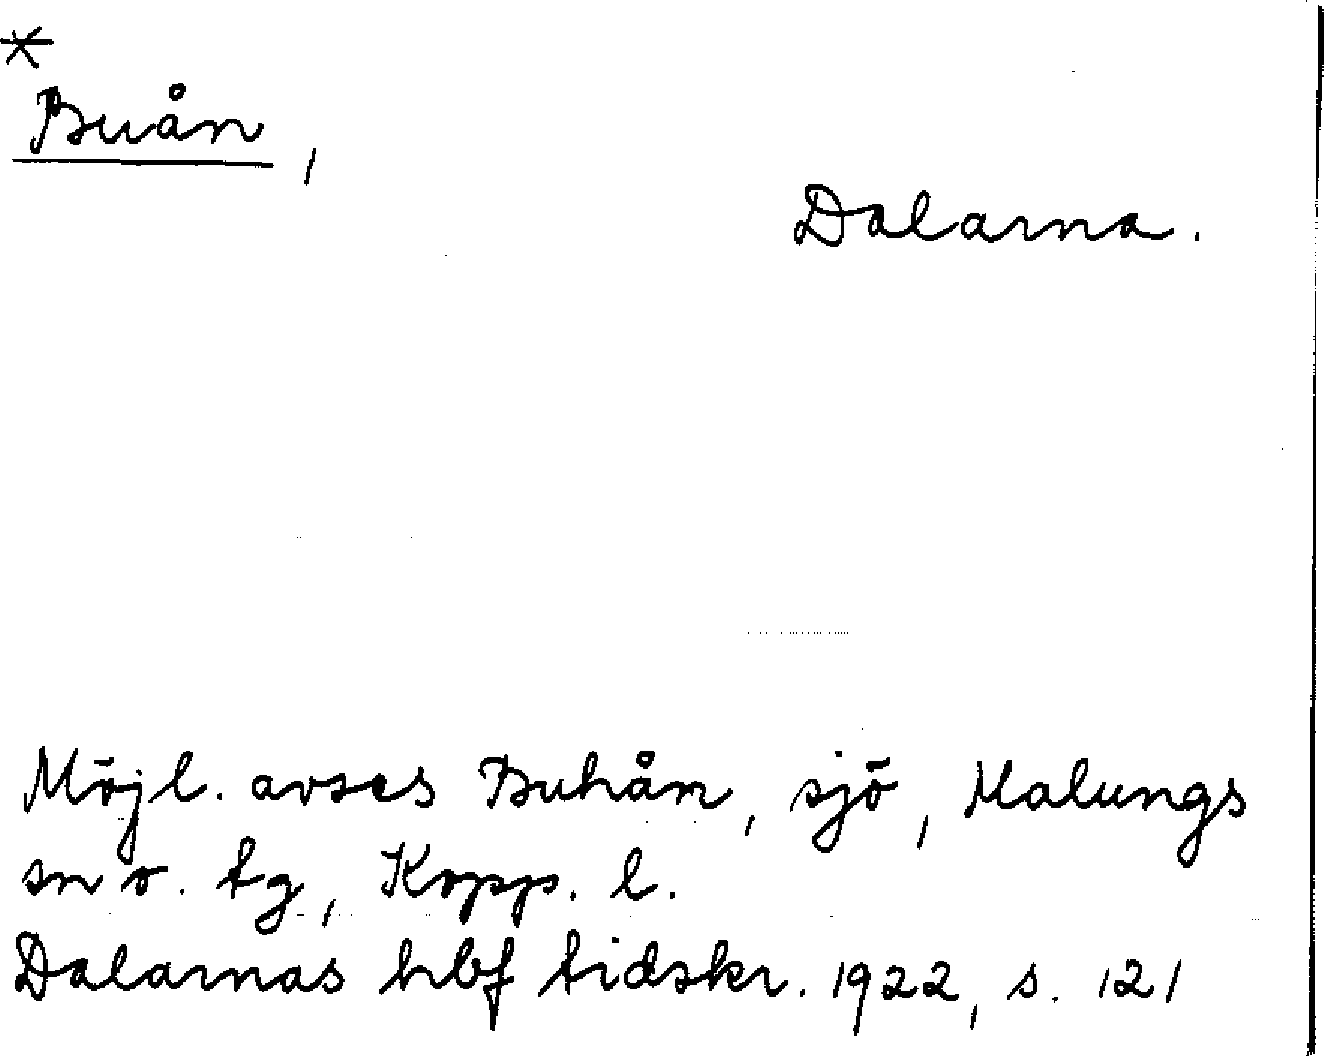 *
Buån,
Dalarna.
Möjl. avses Buhån, sjö, Malungs
sn o. tg, Kopp. l.
Dalarnas hbf tidskr. 1922, s. 121